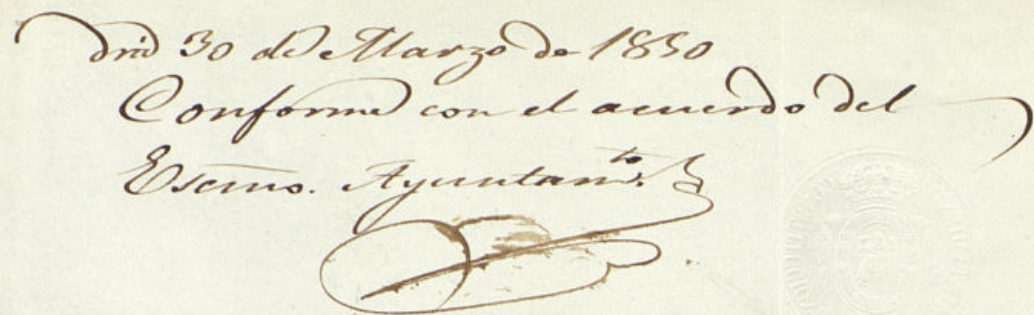 Drid 30 de Marzo de 1850
Conforme con el acuerdo del
Escmo. Ayuntam.to